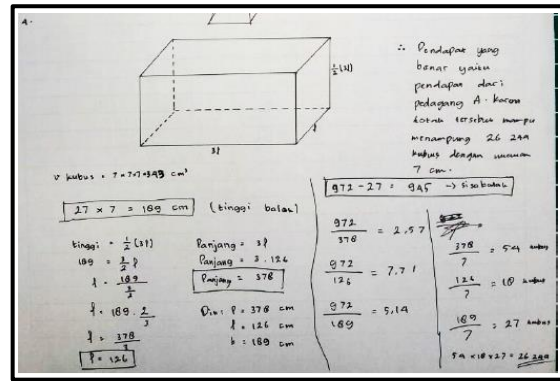 A.
½(3l)
l
3l
∴ Pendapat yang
benar yaitu
pendapat dari
pedagang A. Karena
kotak tersebut mampu
menampung 26 244
kubus dengan ukuran
7 cm.
v kubus = 7×7×7=343 cm³
27 × 7 = 189 cm (tinggi balok)
tinggi = ½(3l)
189 = 3/2 l
l = 189 / 3/2
l = 189 . 2/3
l = 378/3
l = 126
Panjang = 3l
Panjang = 3 . 126
Panjang = 378
Dim: P = 378 cm
l = 126 cm
t = 189 cm
972 - 27 = 945 → sisa balok
972/378 = 2,57
972/126 = 7.71
972/189 = 5,14
378/7 = 54 kubus
126/7 = 18 kubus
189/7 = 27 kubus
54 × 18 × 27 = 26 244